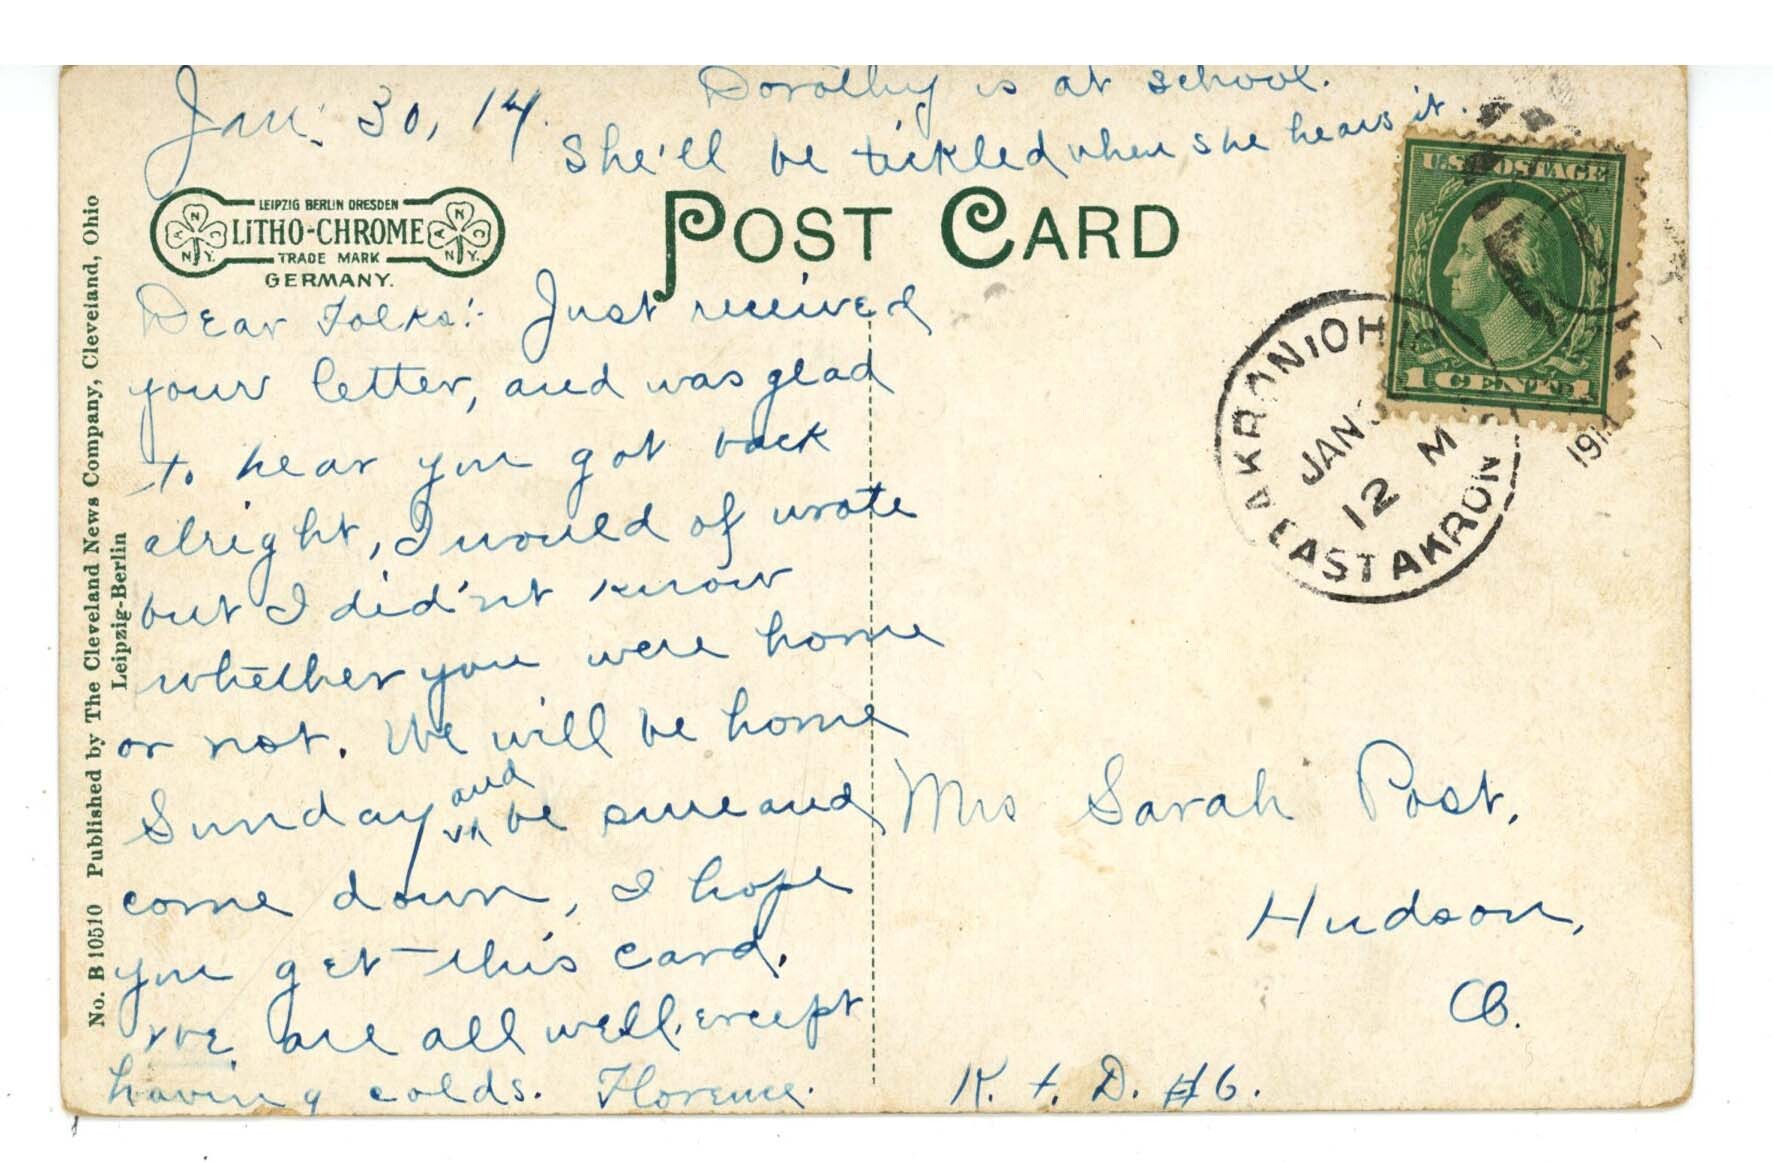 Jan. 30, 14.
Dorothy is at school.
She'll be tickled when she hears it.
LEIPZIG BERLIN DRESDEN
LITHO-CHROME
TRADE MARK
GERMANY.
POST CARD
U.S. POSTAGE
1 CENTS 1
AKRON, OHIO
JAN 30
12 M
1914
EAST AKRON
No. B 10510 Published by The Cleveland News Company, Cleveland, Ohio
Leipzig-Berlin
Dear Folks:- Just received
your letter, and was glad
to hear you got back
alright, I would of wrote
but I did'nt know
whether you were home
or not. We will be home
Sunday and be sure and
come down, I hope
you get this card.
We are all well, except
having colds. Florence.
Mrs Sarah Post,
Hudson,
O.
R. F. D. #6.